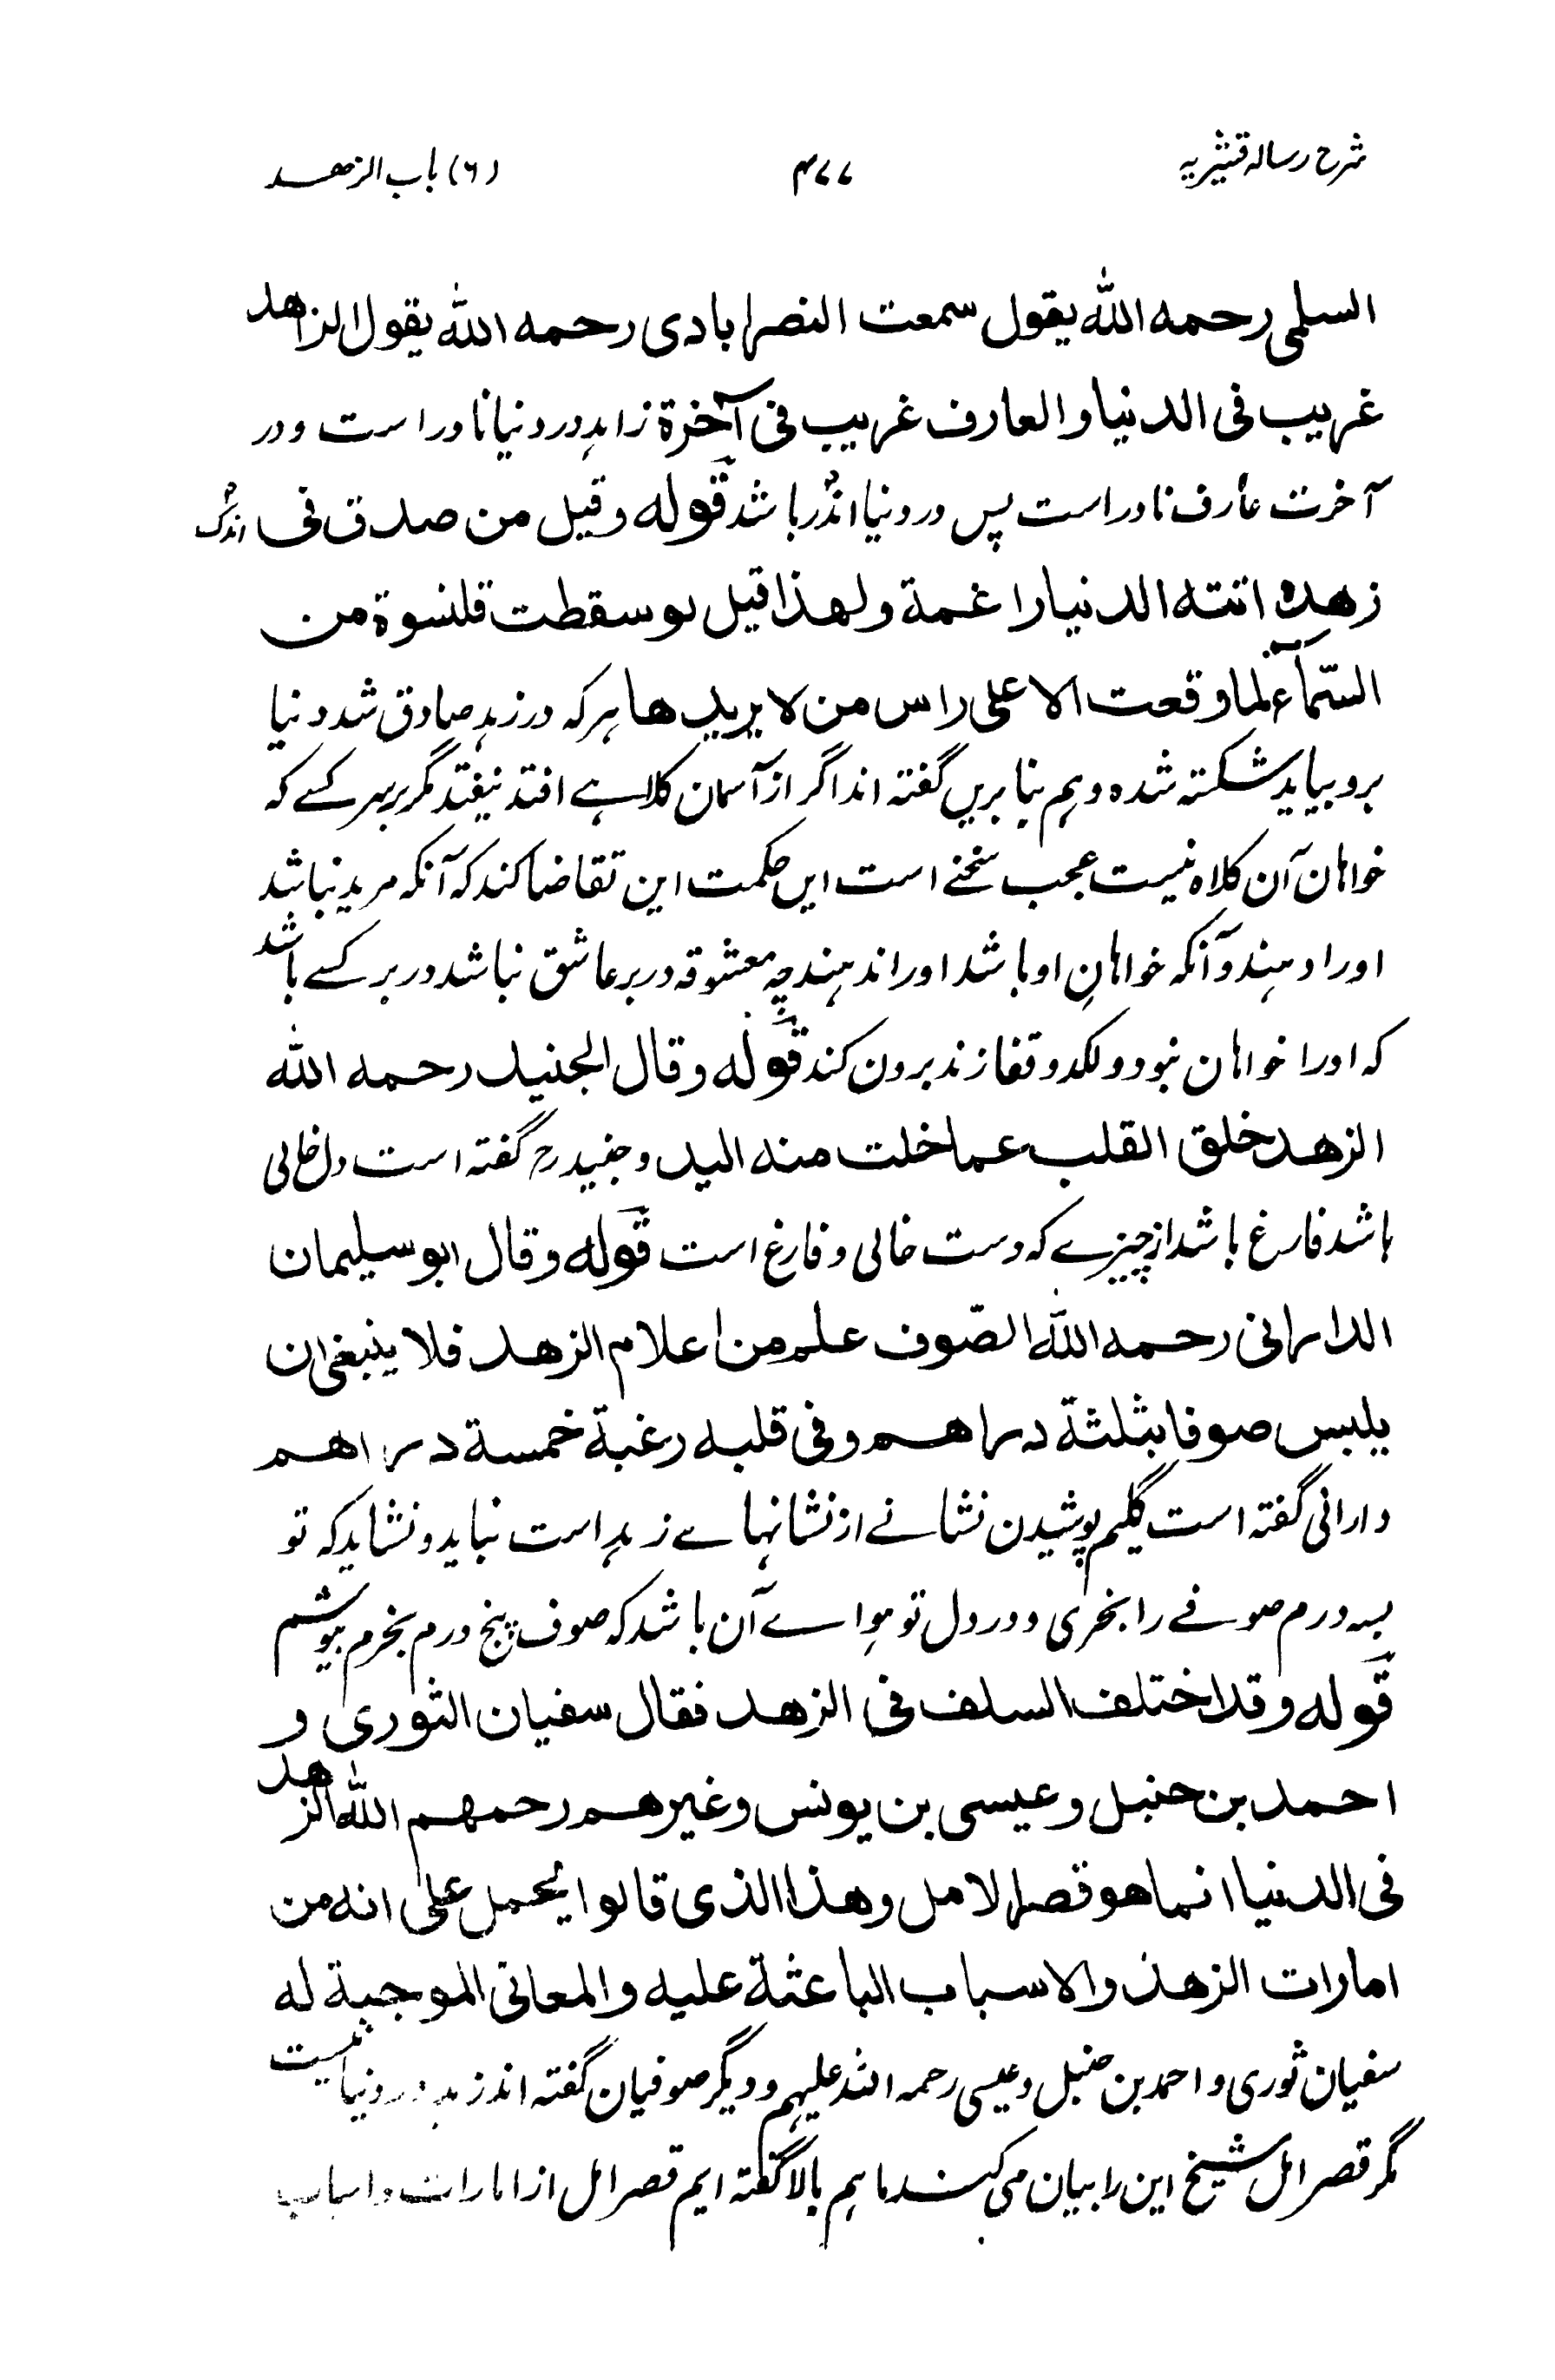 شرح رسالہ قشیریہ ۴۷۷ (۶) باب الزهد
السلمی رحمه الله یقول سمعت النصرابادی رحمه الله یقول الزاهد
غریب فی الدنیا والعارف غریب فی آخرة زاہد در دنیا نادر است و در
آخرت عارف نادر است پس در دنیا اندر باشد قوله وقیل من صدق فی
زهده اتته الدنیا راغمة ولهذا قیل لو سقطت قلنسوة من
السّمآء لما وقعت الا علی راس من لا یریدها ہر کہ در زہد صادق شد دنیا
برو بیاید شکستہ شدہ و ہم بنا بریں گفتہ اند اگر از آسمان کلاہے افتد نیفتد مگر بر سر کسے کہ
خواہان آن کلاہ نیست عجب سخنے است ایں حکمت این تقاضا کند کہ آنکہ مرید نباشد
اورا دہند و آنکہ خواہانِ او باشد اورا ندہند چہ معشوقہ در بر عاشق نباشد در بر کسے باشد
کہ اورا خواہان نبود و لکد و قفا زند برون کند قوله وقال الجنید رحمه الله
الزهد خلق القلب عما خلت منه الید و جنید رح گفتہ است دل خالی
باشد فارغ باشد از چیزے کہ دست خالی و فارغ است قوله وقال ابو سلیمان
الدارانی رحمه الله الصّوف علم من اعلام الزهد فلا ینبغی ان
یلبس صوفا بثلثة دراهم وفی قلبه رغبة خمسة دراهم
دارانی گفتہ است گلیم پوشیدن نشانے از نشانہاے زہد است نباید و نشاید کہ تو
بسہ درم صوفے را بخری و در دل تو ہواے آن باشد کہ صوف پنج درم بخرم بپوشم
قوله وقد اختلف السلف فی الزهد فقال سفیان الثوری و
احمد بن حنبل وعیسی بن یونس وغیرهم رحمهم الله الزهد
فی الدنیا انما هو قصر الامل وهذا الذی قالوا یحمل علی انه من
امارات الزهد والاسباب الباعثة علیه والمعانی الموجبة له
سفیان ثوری و احمد بن حنبل و عیسی رحمہ اللہ علیہم و دیگر صوفیان گفتہ اند زہد در دنیا نیست
مگر قصر امل شیخ این را بیان می کند ما ہم بالا گفتہ ایم قصر امل از امارات و اسباب